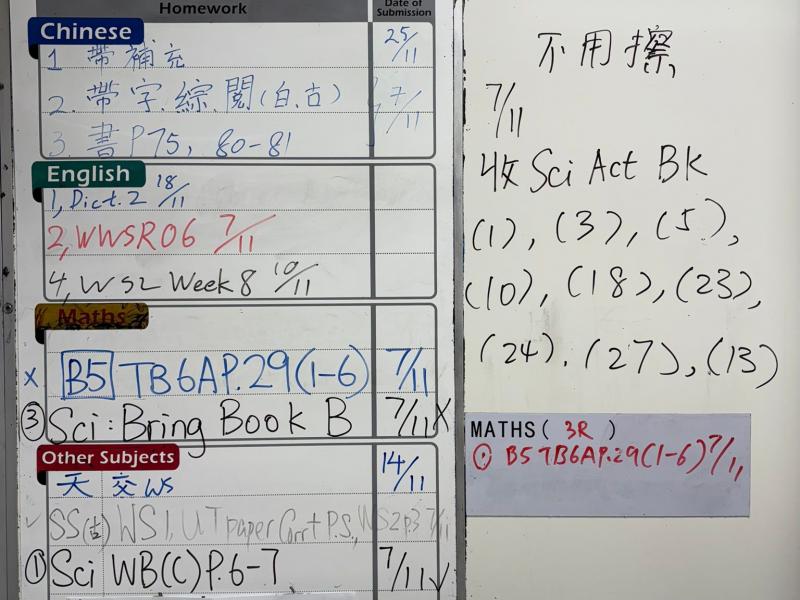 Homework
Date of Submission
Chinese
1 帶補充 25/11
2. 帶字.綜.閱(白.古) 7/11
3. 書P75, 80-81
English
1, Dict. 2 18/11
2, WWSR06 7/11
4, WS2 Week 8 10/11
Maths
x B5 TB6AP.29(1-6) 7/11
③ Sci: Bring Book B 7/11 x
Other Subjects
天交WS 14/11
✓ SS(古) WS1, UT paper Corr + P.S., WS2 p.3 7/11
① Sci WB(C) P.6-7 7/11 ✓
不用擦
7/11
收 Sci Act BK
(1), (3), (5),
(10), (18), (23),
(24). (27), (13)
MATHS( 3R )
① B5 TB6AP.29(1-6) 7/11